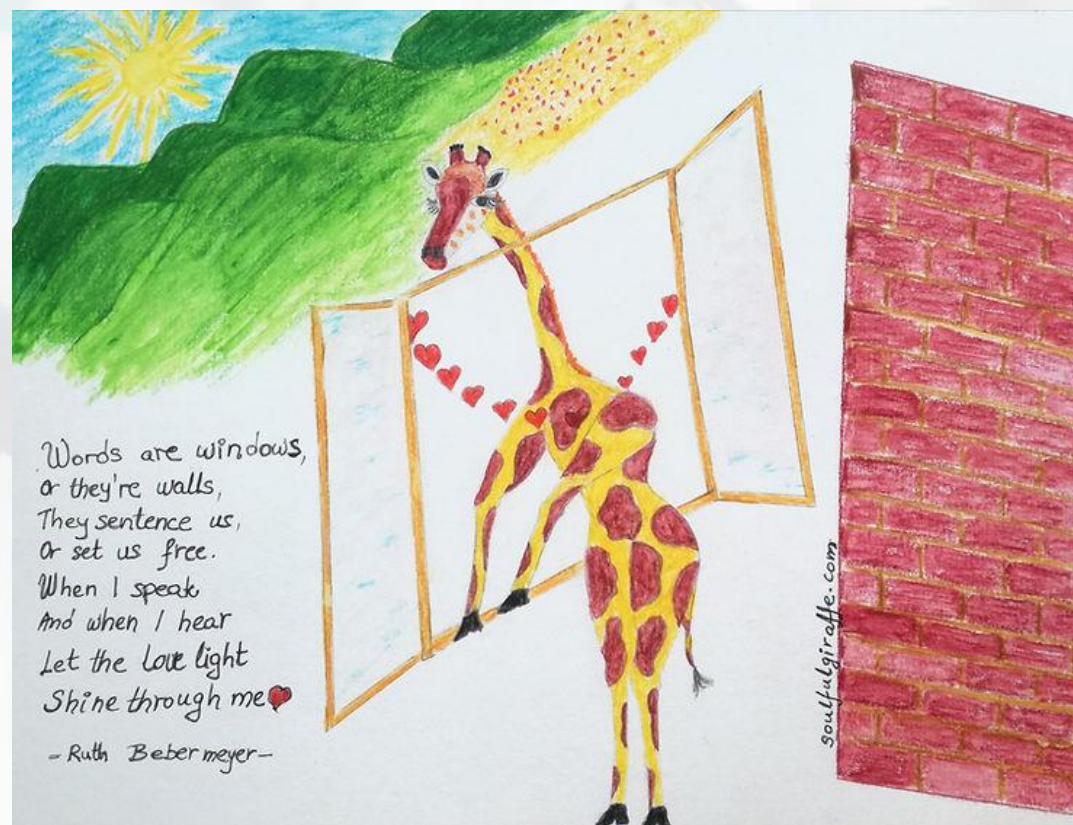 Words are windows,
Or they're walls,
They sentence us,
Or set us free.
When I speak
And when I hear
Let the Love light
Shine through me
- Ruth Bebermeyer -
soulfulgiraffe.com